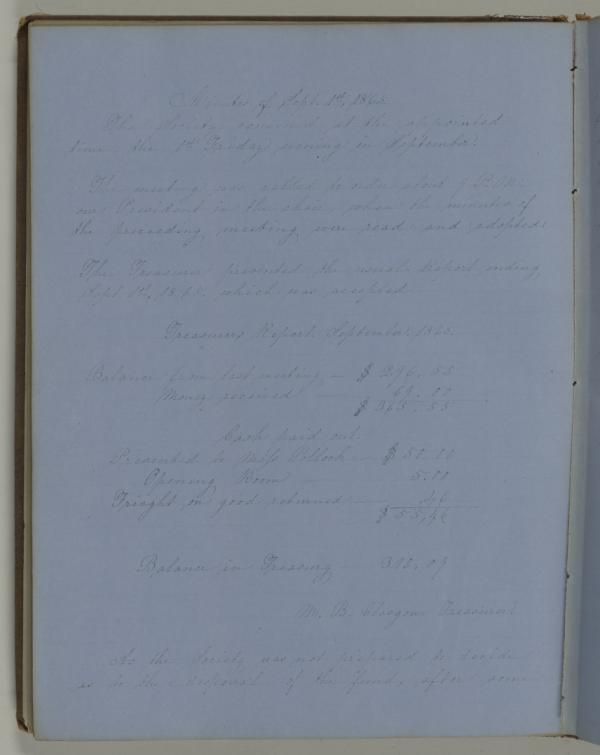 Minutes of Sept. 1st, 1865.
The Society convened at the appointed
time, the 1st Friday evening in September.
The meeting was called to order about 7 P.M.
our President in the chair, when the minutes of
the preceeding meeting were read and adopted.
The Treasurer presented the usual Report ending
Sept 1st, 1865. which was accepted.
Treasurers Report. September. 1865.
Balance from last meeting — $ 296.55
Money received — 69.00
$ 365.55
Cash paid out.
Presented to Miss Pollock — $ 50.00
Opening Room — 5.00
Frieght on good returned — 46
$ 55,46
Balance in Treasury — 310.09
M. B. Glasgow Treasurer.
As the Society was not prepared to decide
as to the disposal of the fund, after some